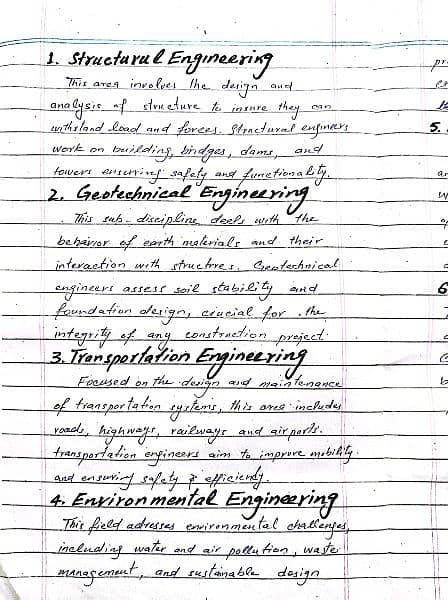 1. Structural Engineering
This area involves the design and
analysis of structure to insure they can
withstand load and forces. Structural engineers
work on building, bridges, dams, and
towers ensuring safety and functionality.
2. Geotechnical Engineering
. This sub-discipline deels with the
behavior of earth materials and their
interaction with structres. Geotechnical
engineers assess soil stability and
foundation design, crucial for the
integrity of any construction project.
3. Transportation Engineering
Focused on the design and maintenance
of transportation systems, this area includes
roads, highways, railways and airports.
transportation engineers aim to improve mobility
and ensuring safety & efficiendy.
4. Environmental Engineering
This field adresses environmental challenges,
including water and air pollution, waste
management, and sustainable design
pr
5.
6